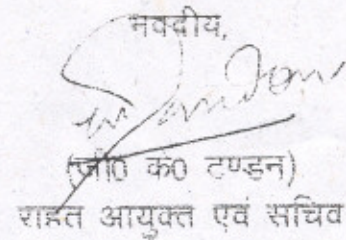 भवदीय,
(जी0 के0 टण्डन)
राहत आयुक्त एवं सचिव